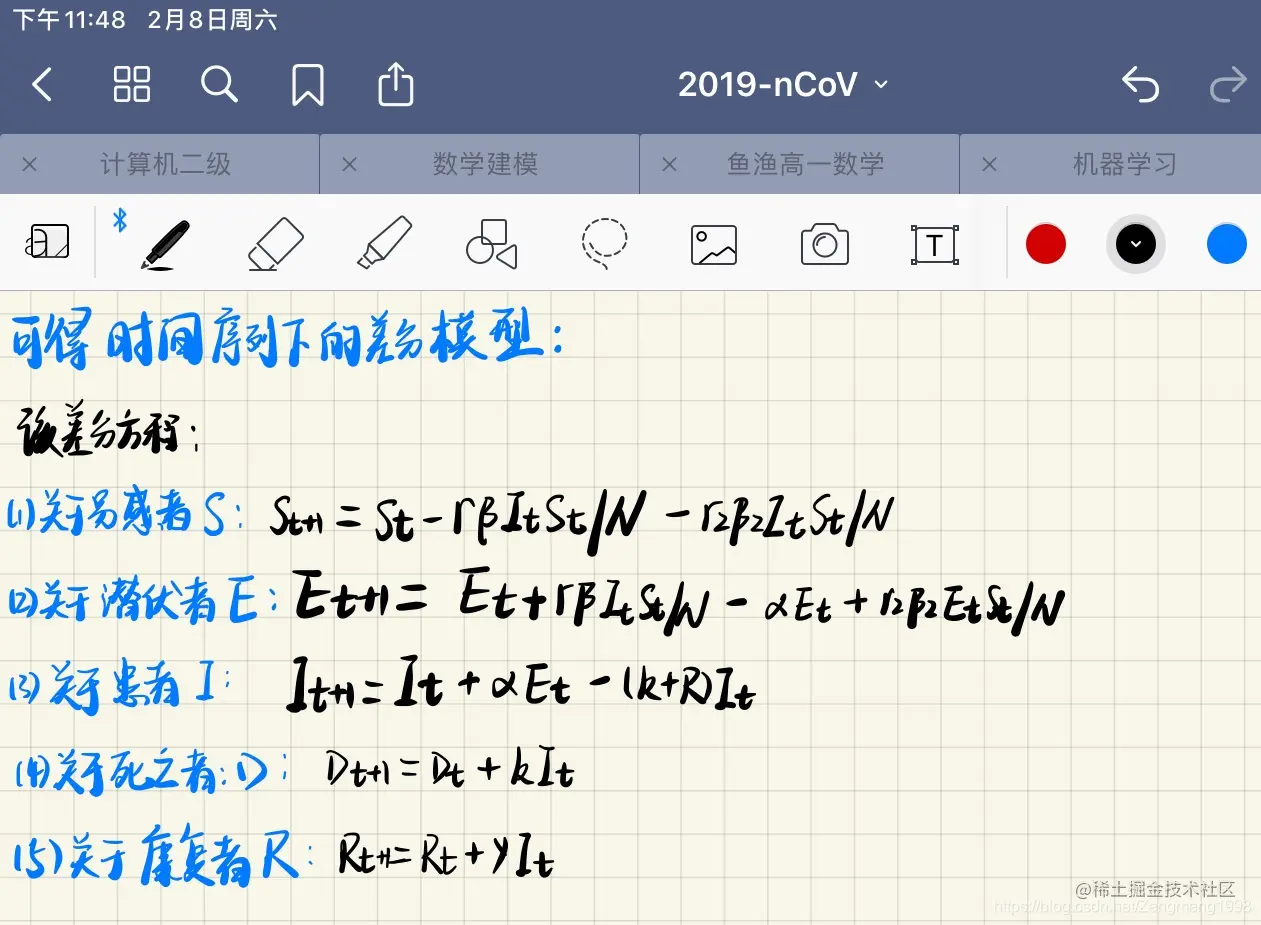 下午11:48 2月8日周六
2019-nCoV
计算机二级 数学建模 鱼渔高一数学 机器学习
T
可得时间序列下的差分模型:
该差分方程:
(1)关于易感者S: St+1 = St - rβItSt/N - r2β2ItSt/N
(2)关于潜伏者E: Et+1 = Et + rβItSt/N - αEt + r2β2EtSt/N
(3)关于患者I: It+1 = It + αEt - (k+R)It
(4)关于死亡者:D: Dt+1 = Dt + kIt
(5)关于康复者R: Rt+1 = Rt + γIt
@稀土掘金技术社区
https://blog.csdn.net/Zengmeng1998